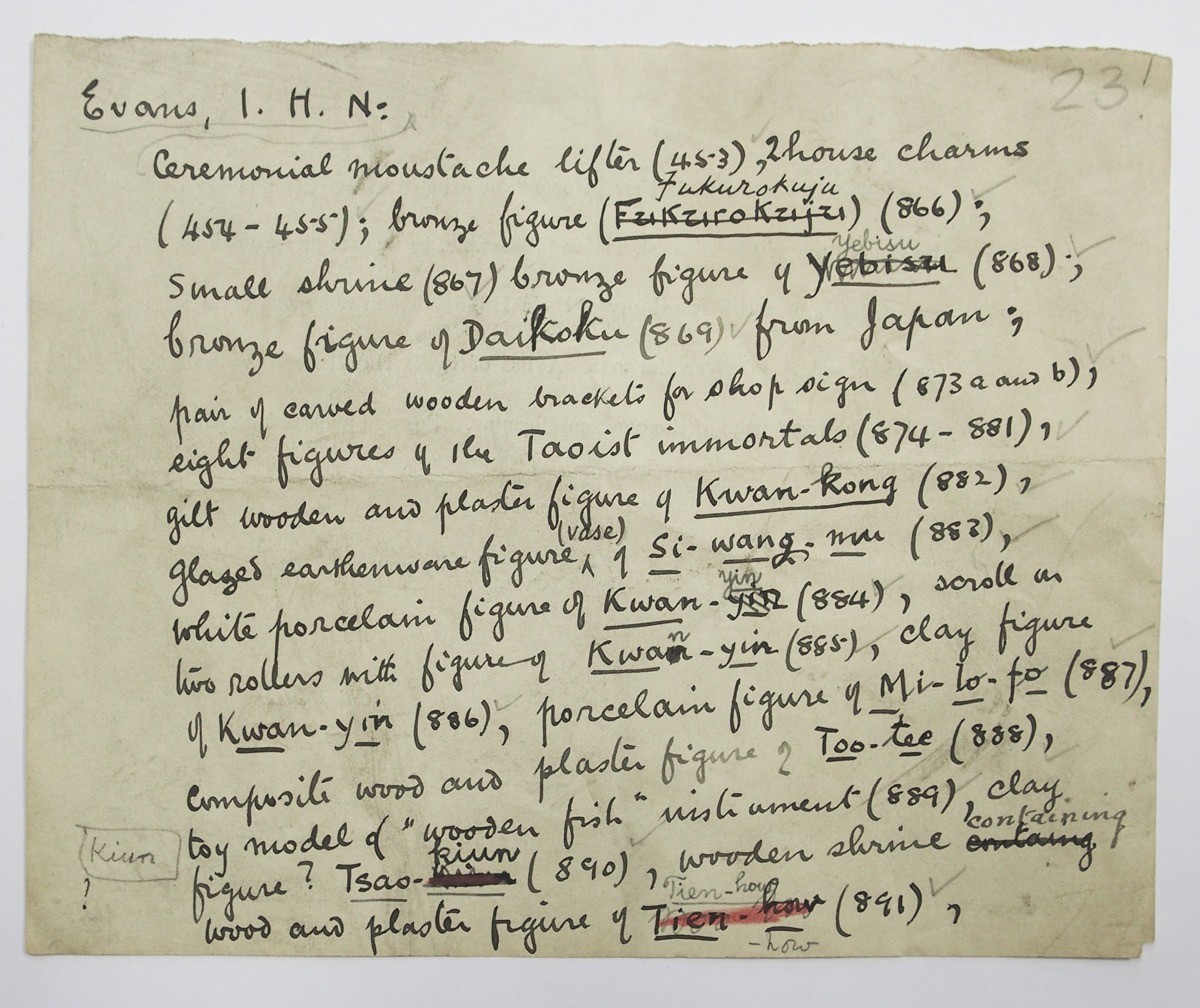 23
Evans, I. H. N:
Ceremonial moustache lifter (453), 2 house charms
Fukurokuju
(454 - 455); bronze figure (Fukurokuju) (866);
Yebisu
Small shrine (867) bronze figure of Yebisu (868);
bronze figure of Daikoku (869) from Japan;
pair of carved wooden brackets for shop sign (873 a and b),
eight figures of the Taoist immortals (874 - 881),
gilt wooden and plaster figure of Kwan-kong (882),
(vase)
Glazed earthenware figure, of Si-wang-mu (883),
yin
white porcelain figure of Kwan-yin (884), scroll on
n
two rollers with figure of Kwan-yin (885), clay figure
of Kwan-yin (886), porcelain figure of Mi-lo-fo (887),
Composite wood and plaster figure of Too-tee (888),
toy model of "wooden fish" instrument (889), clay
kiun containing
Kiun
figure? Tsao- (890), wooden shrine containg
?
Tien-how
wood and plaster figure of Tien-how (891),
-how